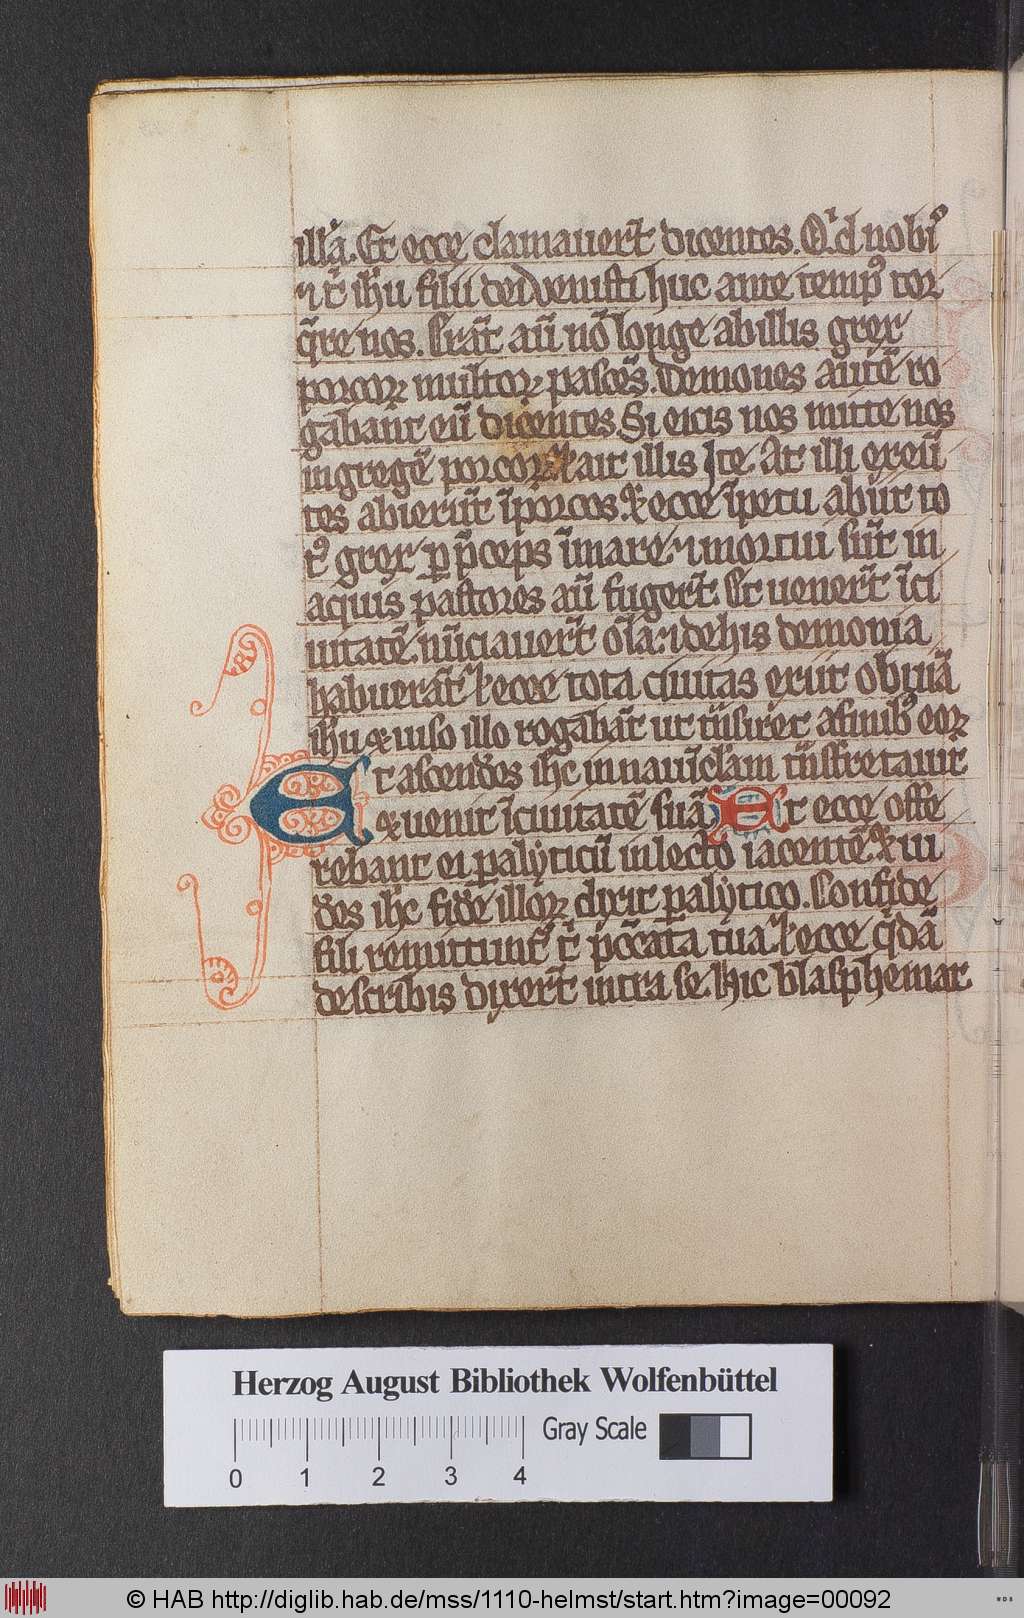 illa. Et ecce clamauer̄t dicentes. Qͥd nobiꝰ
⁊ t̄ ih̄u filii dei venisti huc ante tempꝰ tor
q̄re nos. Erāt au̅ no̅ longe ab illis grex
porcoꝝ multoꝝ pasce̅s. Demones aute̅ ro
gabant eu̅ dicentes Si eicis nos mitte nos
in grege̅ porcoꝝ ⁊ ait illis Ite. At illi exeu̅
tes abieru̅t i̅ porcos. ⁊ ecce i̅petu abiit to
tꝰ grex ꝑ p̅ceps i̅ mare. ⁊ mortui su̅t in
aquis pastores au̅ fuger̄t. Et uener̄t i̅ ci
uitate̅. nu̅ciauer̄t o̅ia. ⁊ de his demonia
habuera̅t ⁊ ecce tota ciuitas exiit obiua̅
ih̄u ⁊ uiso illo rogaba̅t ut t̅nsiret a finibꝰ eoꝝ
Et ascende̅s ih̄c in naui̅cl̅am t̅nsfretauit
⁊ uenit i̅ ciuitate̅ sua̅ Et ecce offe
rebant ei ꝑalyticu̅ in lecto iacente̅ ⁊ ui
de̅s ih̄c fide̅ illoꝝ dixit ꝑalytico. Confide
fili remittunt᷑ t̄ p̅cc̅ata tua ⁊ ecce qͥda̅
de scribis dixer̄t intra se. Hic blasphemat
Herzog August Bibliothek Wolfenbüttel
0 1 2 3 4 Gray Scale
© HAB http://diglib.hab.de/mss/1110-helmst/start.htm?image=00092